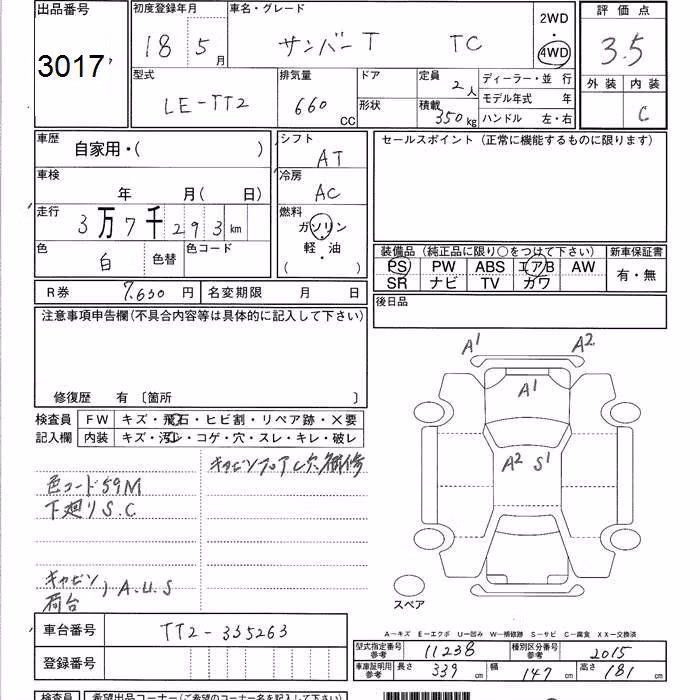 出品番号
3017
初度登録年月
18 5月
車名・グレード
サンバーT TC
2WD
4WD
評価点
3.5
外装 内装
C
型式
LE-TT2
排気量
660 CC
ドア
形状
定員
2人
積載
350kg
ディーラー・並行
モデル年式 年
ハンドル 左・右
車歴
自家用・( )
車検
年 月( 日)
走行
3万7千293km
色
白
色替
色コード
シフト
AT
冷房
AC
燃料
ガソリン
軽・油
( )
セールスポイント(正常に機能するものに限ります)
装備品(純正品に限り○をつけて下さい)
PS PW ABS エアB AW
SR ナビ TV カワ
新車保証書
有・無
R券 7,650円
名変期限 月 日
後日品
注意事項申告欄(不具合内容等は具体的に記入して下さい)
修復歴 有 〔箇所 〕
検査員
記入欄
FW キズ・飛石・ヒビ割・リペア跡・×要
内装 キズ・汚レ・コゲ・穴・スレ・キレ・破レ
色コード59M
下廻りS.C
キャビンフロアした穴補修
キャビン
荷台
A.U.S
A1 A2
A1
A2 S1
スペア
車台番号
TT2-335263
登録番号
A-キズ E-エクボ U-凹み W-補修跡 S-サビ C-腐食 XX-交換済
型式指定番号
参考
11238
種別区分番号
参考
2015
車庫証明用
参考
長さ 339cm
幅 147cm
高さ 181cm
検査員
希望出品コーナー(ご希望のコーナー名を記入して下さい)